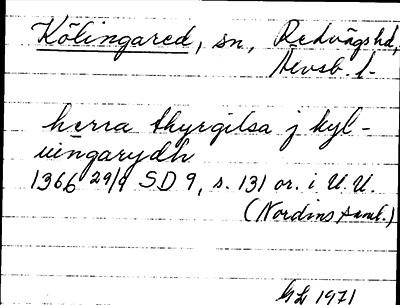 Kölingared, sn., Redvägshd,
Älvsb. l.
herra thyrgilsa j kyl-
uingarydh
1366 29/9 SD 9, s. 131 or. i U.U.
(Nordins saml.)
GL 1971